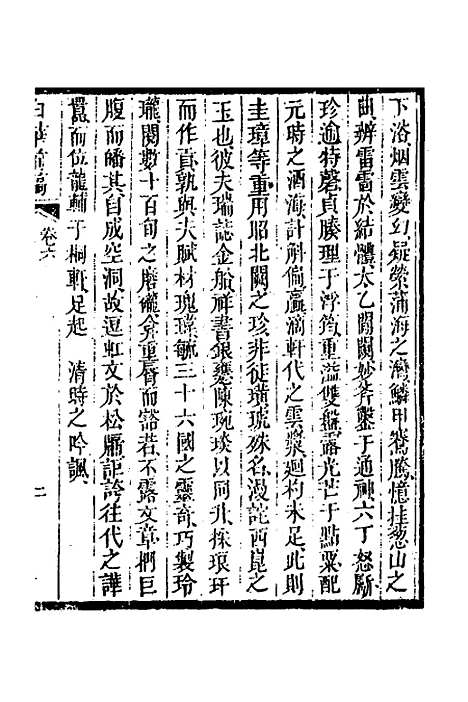 下洛烟雲變幻疑縈蒲海之瀾鱗甲騫騰憶挂葱山之
曲辨雷靁於結體太乙闘閎妙筞鑿于通神六丁怒斸
珍逾特磬貞騰理于浮筠重溢雙盤露光芒于點粟配
元時之酒海計斛偏贏滴軒代之雲漿迴杓未足此則
圭璋等重用昭北闕之珍非徒璜琥殊名漫詑西崑之
玉也彼夫瑞誌金船祥書銀甕陳琬琰以同升採琅玕
而作貢孰與夫賦材瑰瑋毓三十六國之靈奇巧製玲
瓏閱數十百旬之磨礲弇重唇而豁若不露文章枵巨
腹而皤其自成空洞故逗虹文於松牖詎誇往代之譁
囂而位龍輔于桐軒足起 清時之吟諷
卷六
二